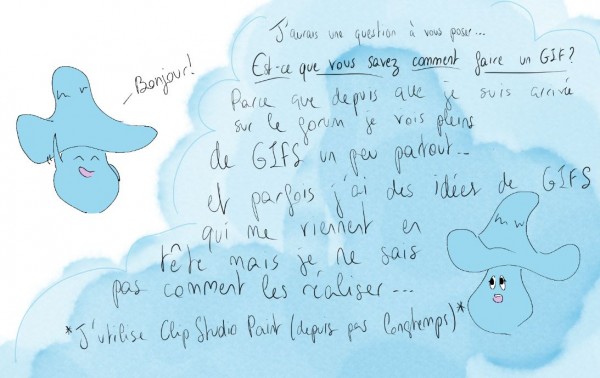 Bonjour!
J'aurais une question à vous poser...
Est-ce que vous savez comment faire un GIF?
Parce que depuis que je suis arrivée
sur le forum je vois pleins
de GIFS un peu partout...
et parfois j'ai des idées de GIFS
qui me viennent en
tête mais je ne sais
pas comment les réaliser...
*J'utilise Clip Studio Paint (depuis pas longtemps)*